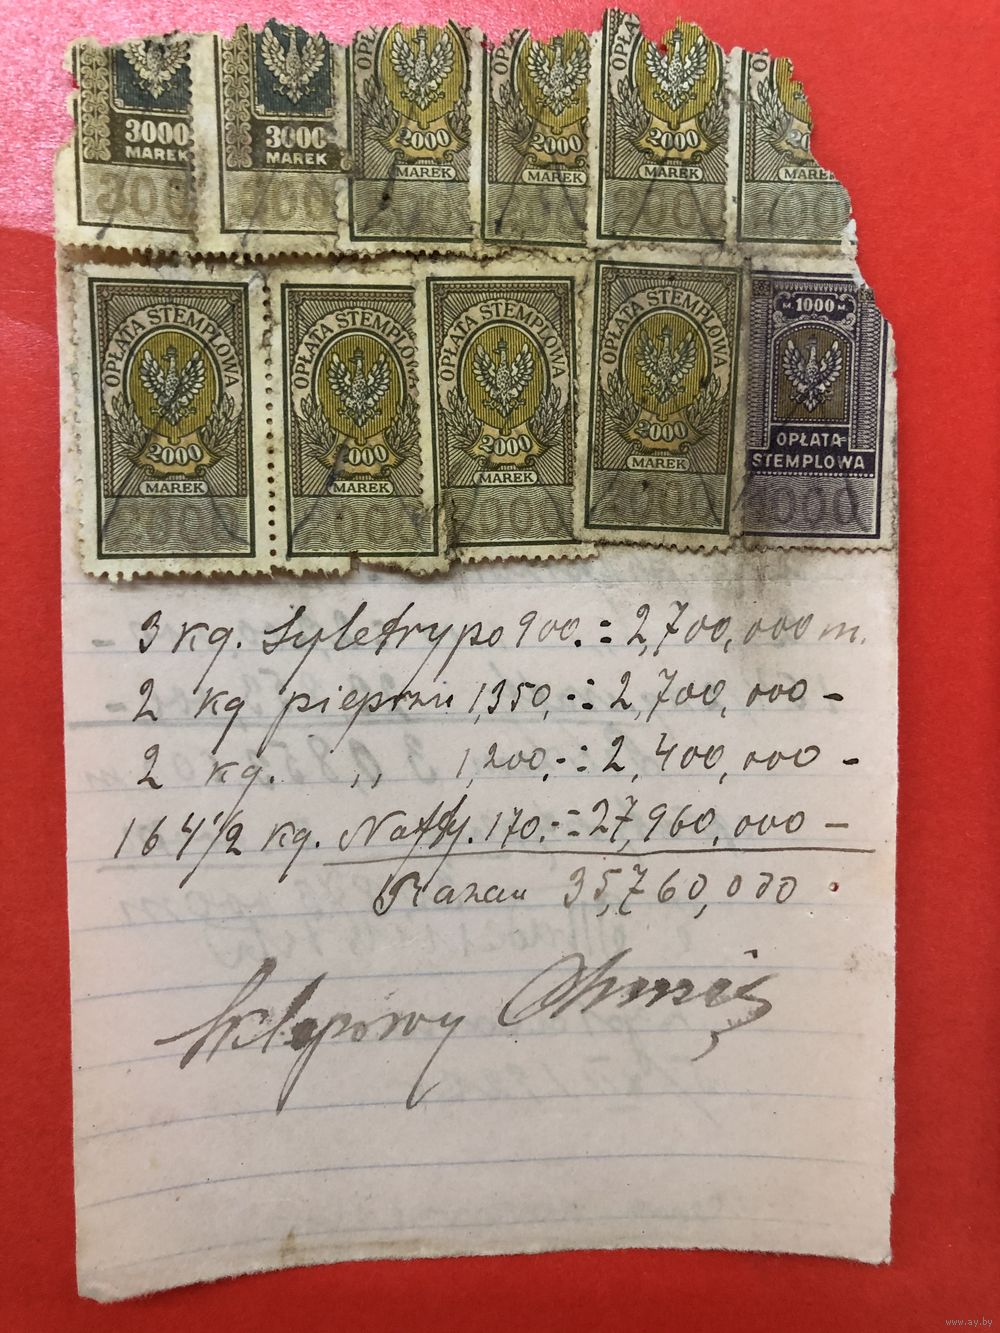 3000 3000 2000 2000 2000
MAREK MAREK MAREK MAREK MAREK MAREK
OPŁATA STEMPLOWA OPŁATA STEMPLOWA OPŁATA STEMPLOWA OPŁATA STEMPLOWA M 1000 M
2000 2000 2000 2000 OPŁATA-
MAREK MAREK MAREK MAREK STEMPLOWA
3 kg. po 900. = 2,700,000 m.
2 kg pieprzu 1,350,- = 2,700,000 -
2 kg. ,, 1,200,- = 2,400,000 -
164 1/2 kg. Nafty. 170.- = 27,960,000 -
Razem 35,760,000
Sklepowy
www.ay.by